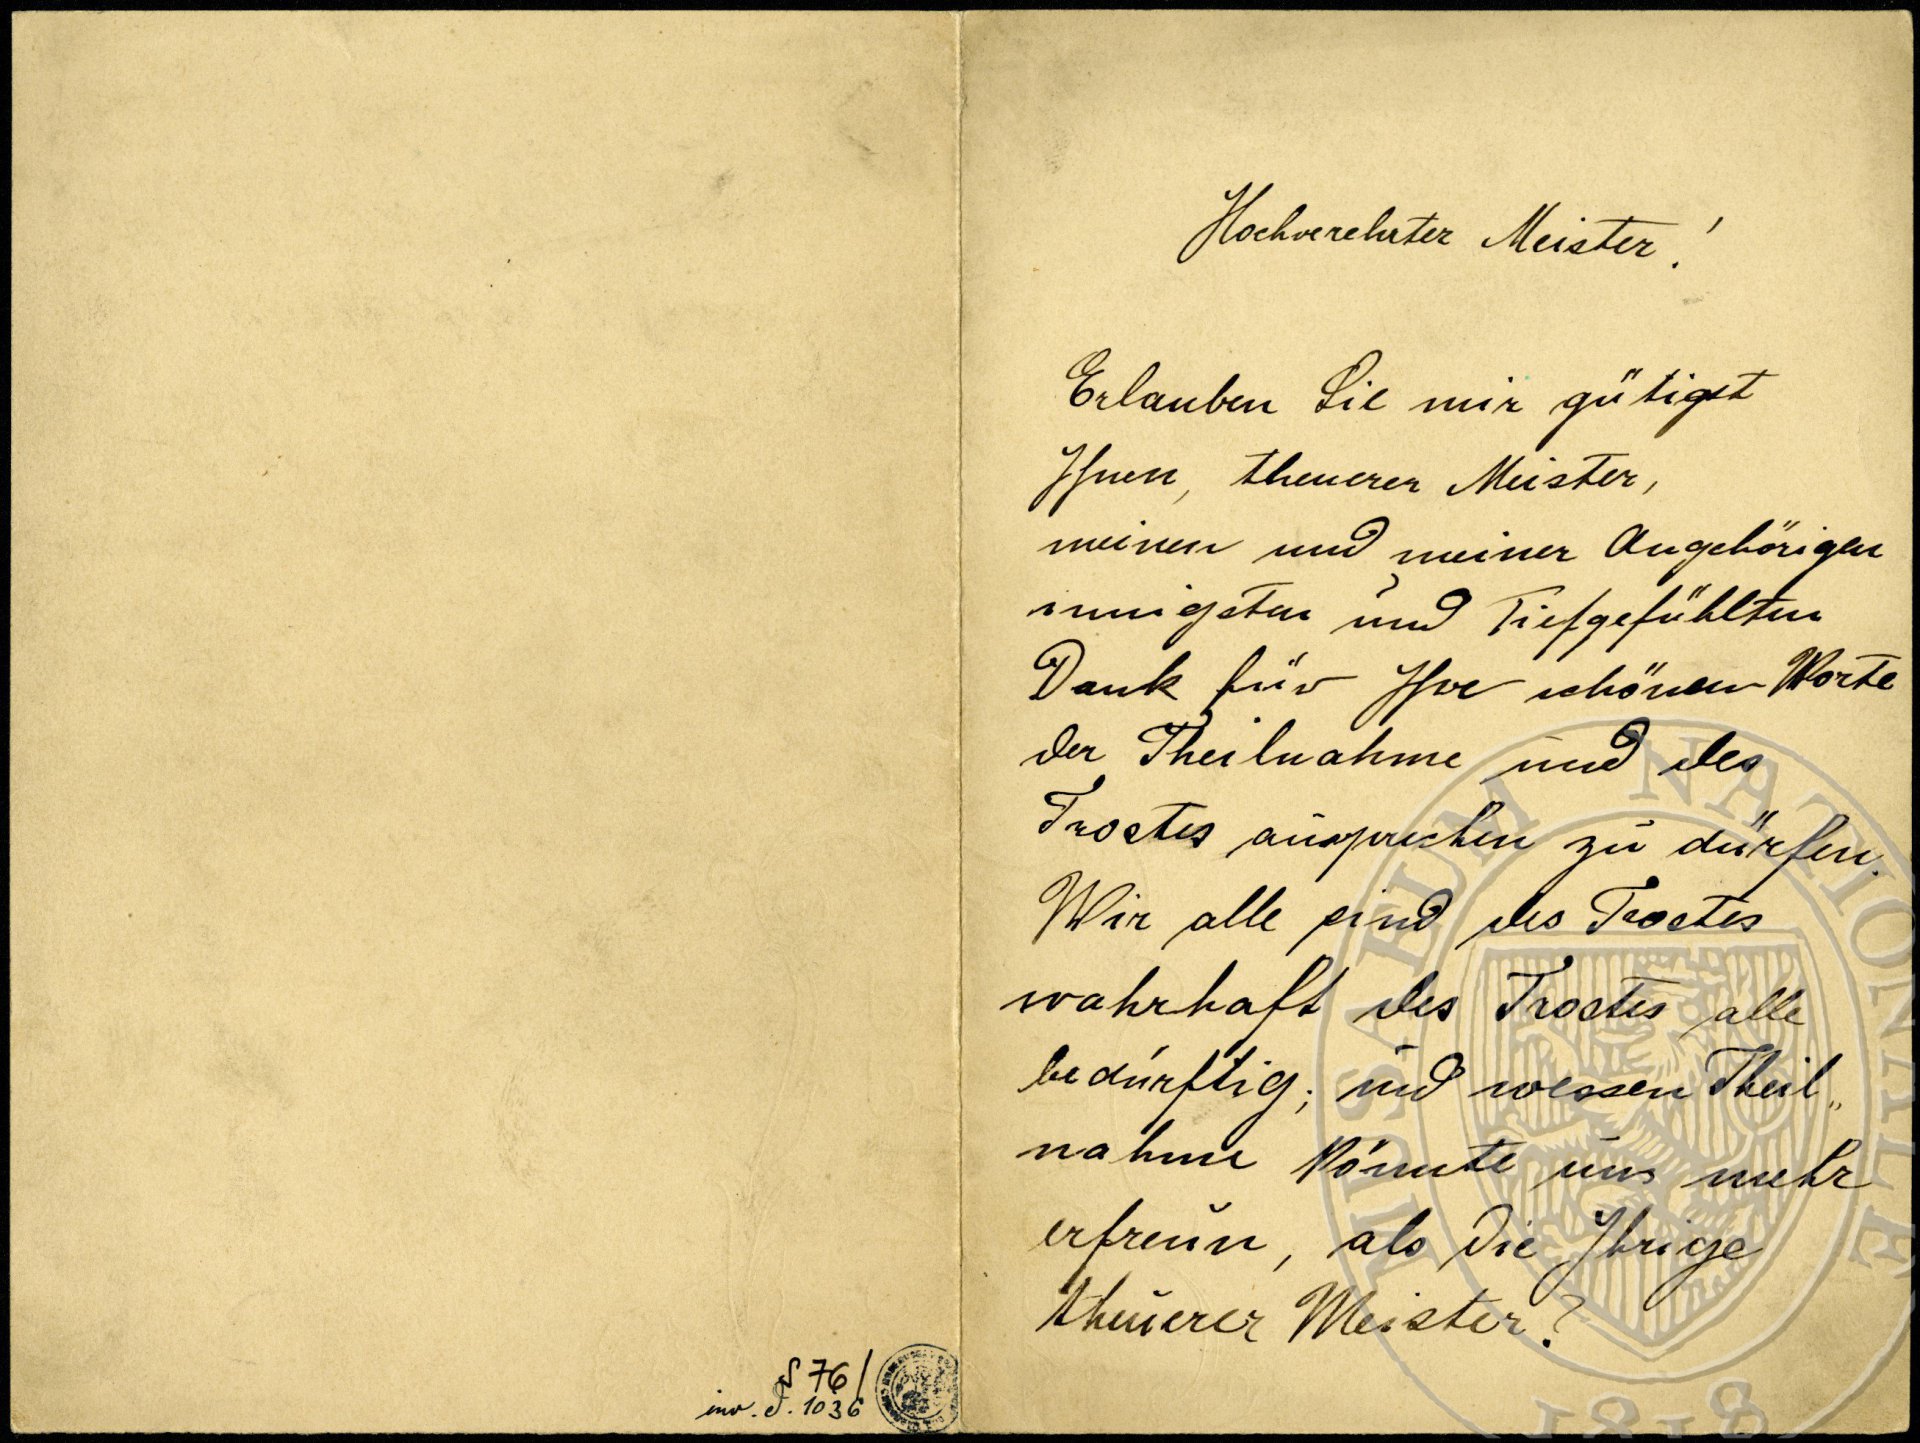 Hochverehrter Meister!
Erlauben Sie mir gütigst
Ihnen, theuerer Meister,
meinen und meiner Angehörigen
innigsten und tiefgefühlten
Dank für Ihre schönen Worte
der Theilnahme und des
Trostes aussprechen zu dürfen.
Wir alle sind des Trostes
wahrhaft des Trostes alle
bedürftig; und wessen Theil„
nahme könnte uns mehr
erfreun, als die Ihrige
theuerer Meister?
S 76/
inv. č. 1036
MUSAEUM NATIONALE
1818